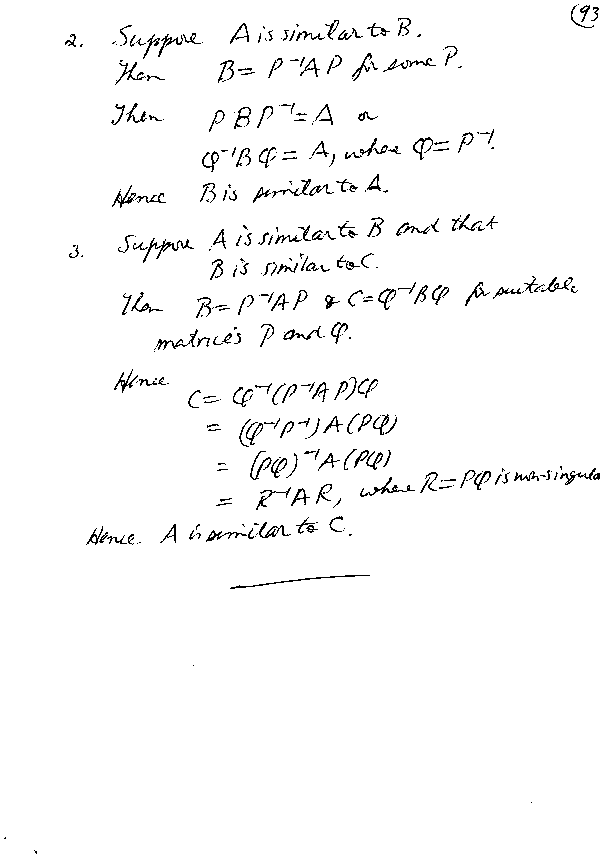 (93
2. Suppose A is similar to B.
Then B = P⁻¹AP for some P.
Then PBP⁻¹ = A or
Q⁻¹BQ = A, where Q = P⁻¹.
Hence B is similar to A.
3. Suppose A is similar to B and that
B is similar to C.
Then B = P⁻¹AP & C = Q⁻¹BQ for suitable
matrices P and Q.
Hence
C = Q⁻¹(P⁻¹AP)Q
= (Q⁻¹P⁻¹)A(PQ)
= (PQ)⁻¹A(PQ)
= R⁻¹AR, where R = PQ is non-singula
Hence A is similar to C.